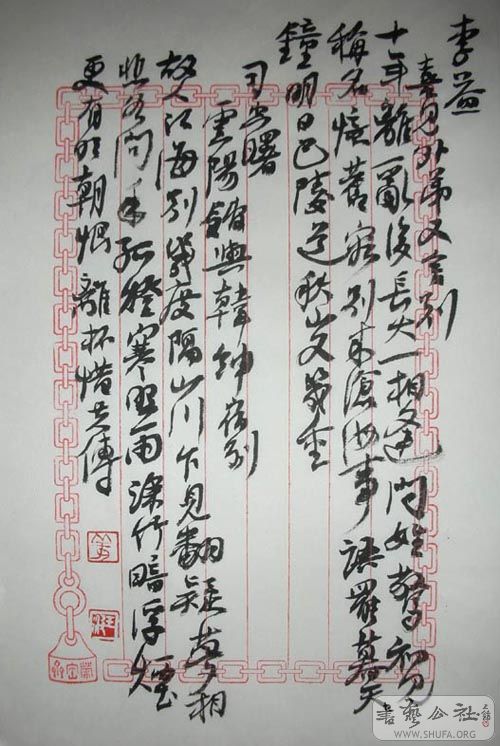 李益
喜見外弟又言別
十年離亂後長大一相逢問姓驚初見
稱名憶舊容別來滄海事語罷暮天
鐘明日巴陵道秋山又幾重
司空曙
雲陽館與韓紳宿別
故人江海別幾度隔山川乍見翻疑夢相
悲各問年孤燈寒照雨深竹暗浮煙
更有明朝恨離杯惜共傳
書藝公社
WWW.SHUFA.ORG